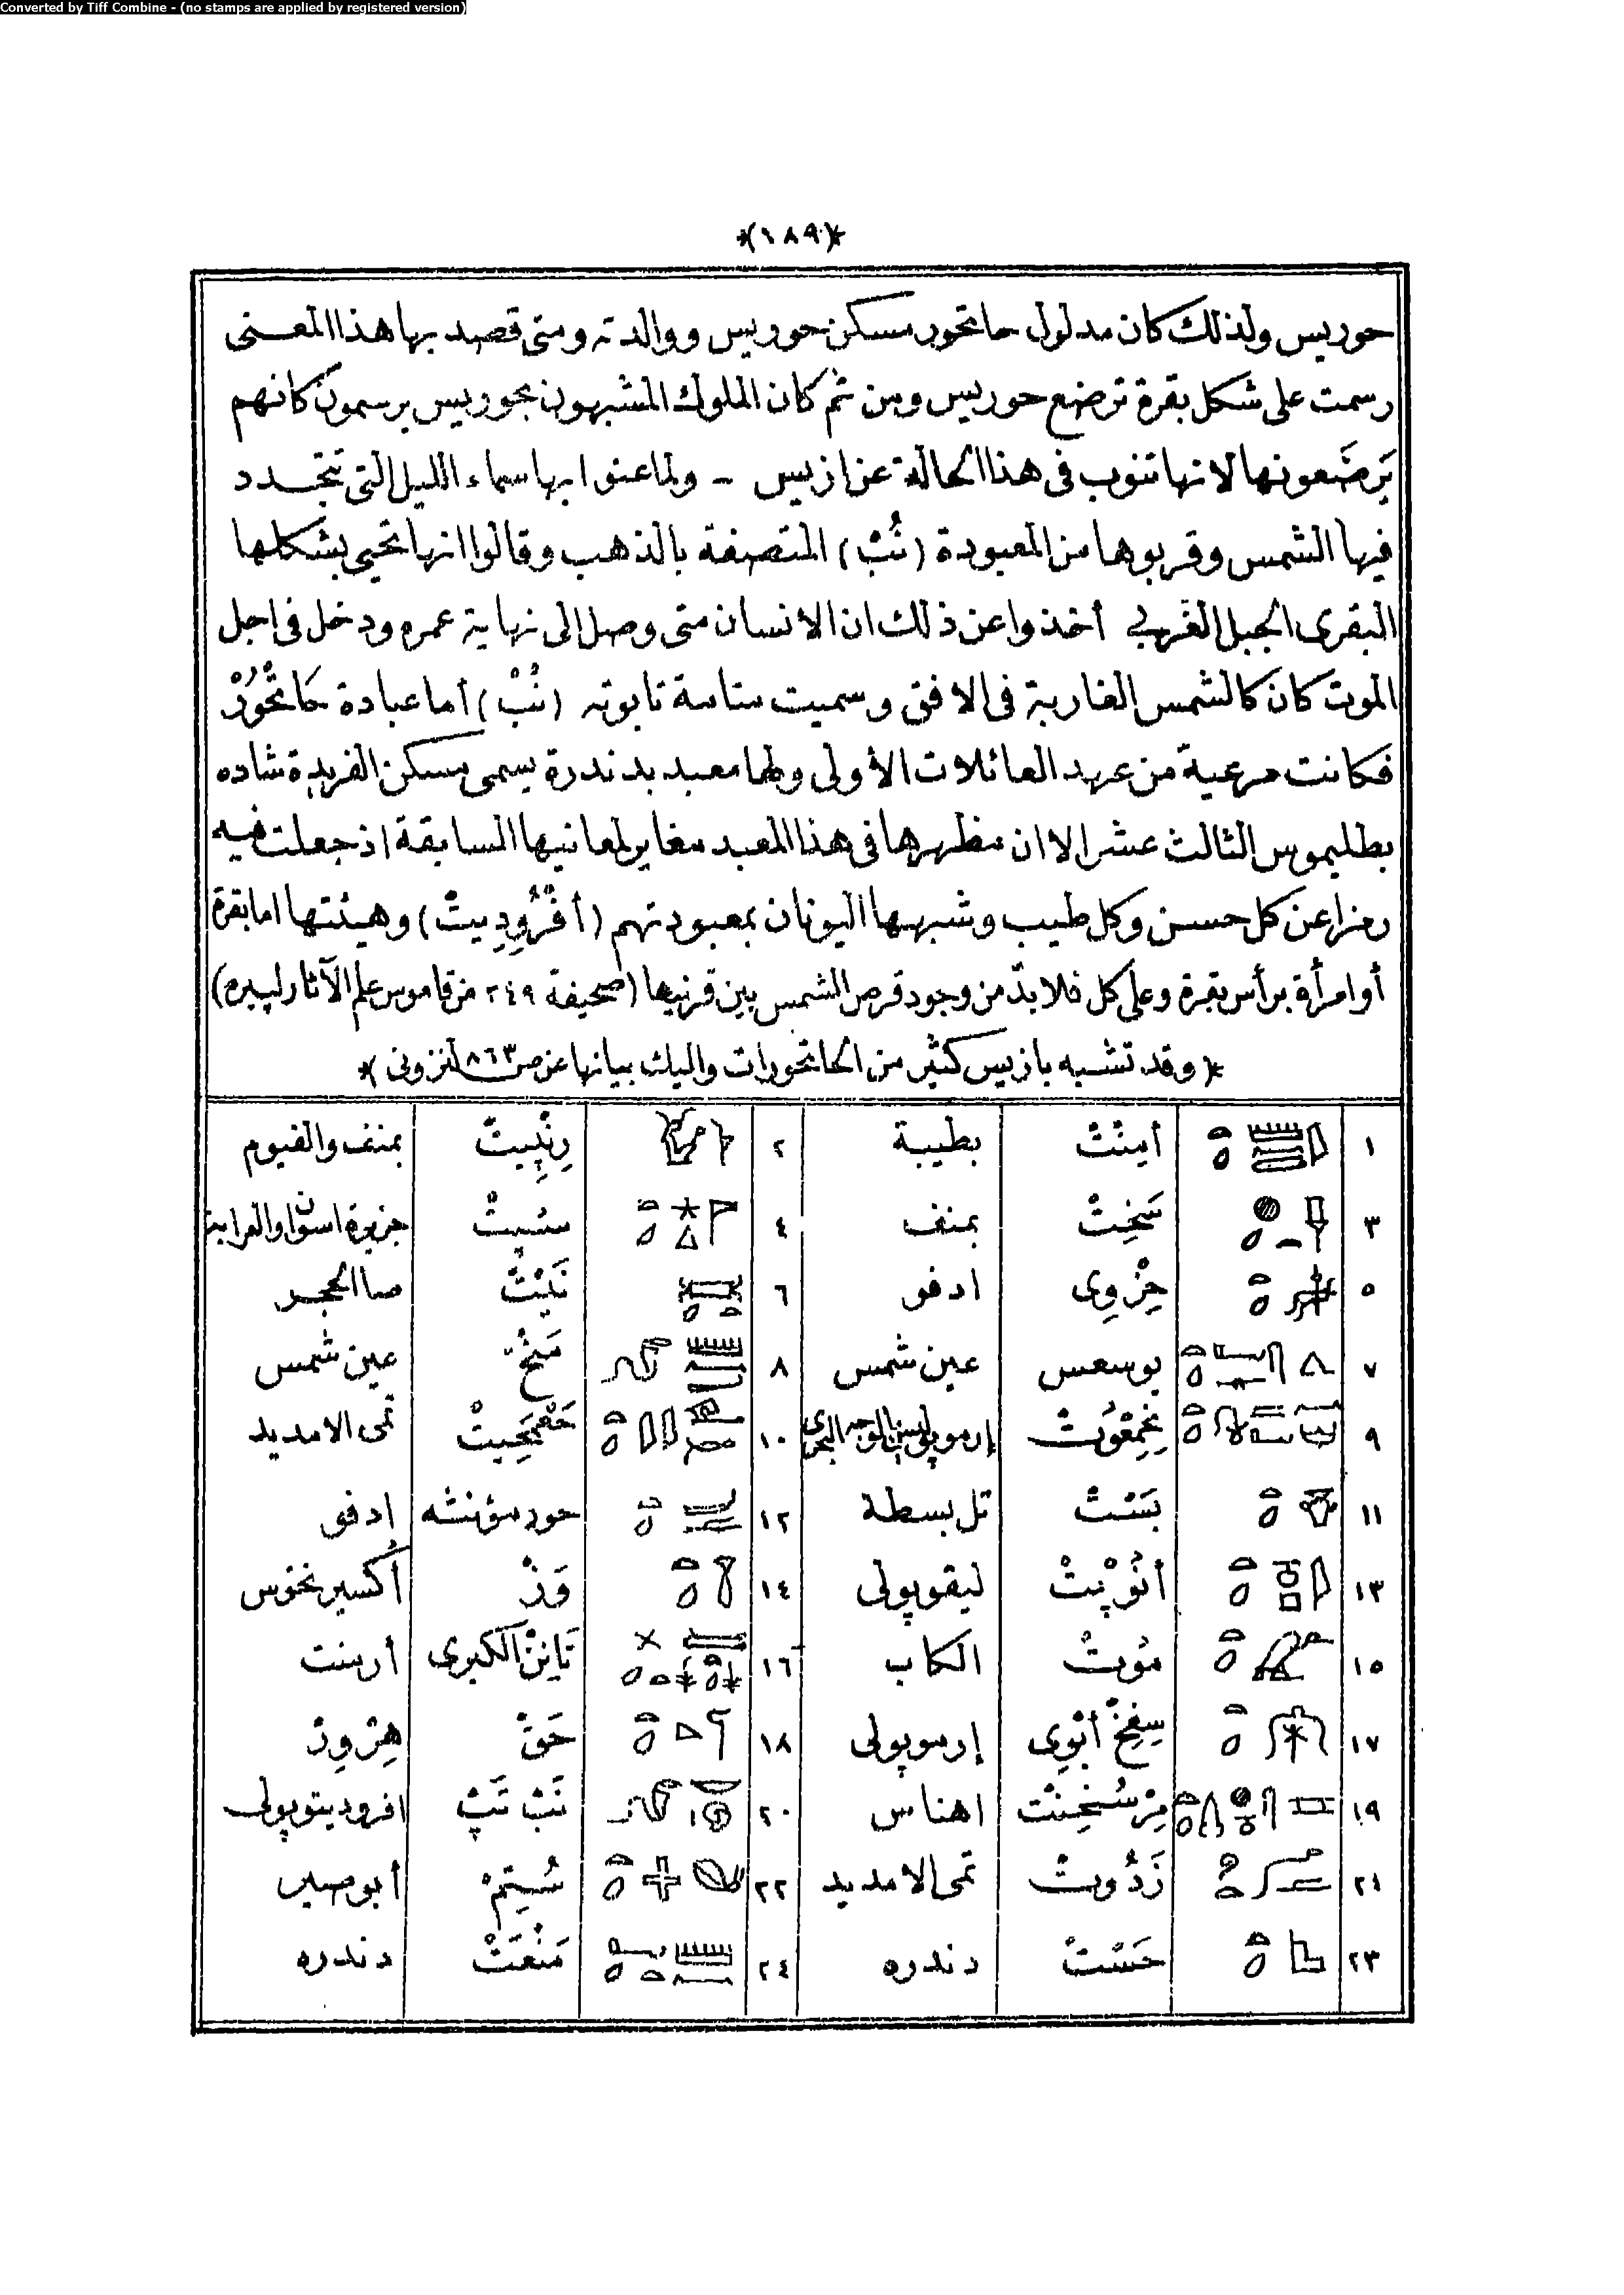 Converted by Tiff Combine - (no stamps are applied by registered version)
*(١٨٩)*
حوريس ولذلك كان مدلول حاتحور مسكن حوريس ووالدته ومتى قصد بها هذا المعنى
رسمت على شكل بقرة ترضع حوريس ومن ثم كان الملوك المشبهون بحوريس يرسمون كانهم
يَرضَعونها لانها تنوب فى هذا الحالة عن ازيس - ولما عنوا بها سماء الليل التى تتجدد
فيها الشمس وقربوها من المعبودة (نُبْ) المتصفة بالذهب وقالوا انها تحيى بشكلها
البقرى الجبل الغربي أخذوا عن ذلك ان الانسان متى وصل الى نهاية عمره ودخل فى اجل
الموت كان كالشمس الغاربة فى الافق وسميت ستاسة تابوته (نُبْ) أما عبادة حَاتْحُورْ
فكانت مرعية من عهد العائلات الأولى ولها معبد بدندرة يسمى مسكن الفريدة شاده
بطليموس الثالث عشر الا ان مظهرها فى هذا المعبد مغاير لمعانيها السابقة اذ جعلت فيه
رمزا عن كل حسن وكل طيب وشبهها اليونان بمعبودتهم (أفْرُودِيتْ) وهيئتها اما بقرة
أو امرأة برأس بقرة وعلى كل فلا بدّ من وجود قرص الشمس بين قرنيها (صحيفة ٢٤٩ من قاموس علم الآثار لپيره)
*(وقد تشبه بازيس كثير من الحاتحورات واليك بيانها عن ص ٨٦٣ لنزونى)*
١ أمِنْتْ بطيبة ٢ رِنْپِيتْ بمنف والفيوم
٣ سَخِتْ بمنف ٤ ستيتْ جزيرة اسوان والعرابة
٥ حِزْوِى ادفو ٦ نَيْتْ صا الحجر
٧ يوسعس عين شمس ٨ عين شمس
٩ نِحِمْعُوتْ إرموپوليس الوجه البحرى ١٠ حَمْحِيتْ تمى الامديد
١١ بَسْتْ تل بسطة ١٢ ادفو
١٣ أنُوْپتْ ليقوپولى ١٤ وَزْ أكسيرنخوس
١٥ مُوتْ الكاب ١٦ تَانِنْ الكبرى أرمنت
١٧ سِفِخْ أبْوِى إرموپولى ١٨ حَقْ هِرْوِرْ
١٩ مِرْسُخِنْتْ اهناس ٢٠ نَبْ تَپْ افروديتوپولى
٢١ زَدُوتْ تمى الامديد ٢٢ سُتِمْ أبوصير
٢٣ حَسْتْ دندره ٢٤ مَنْعَتْ دندره